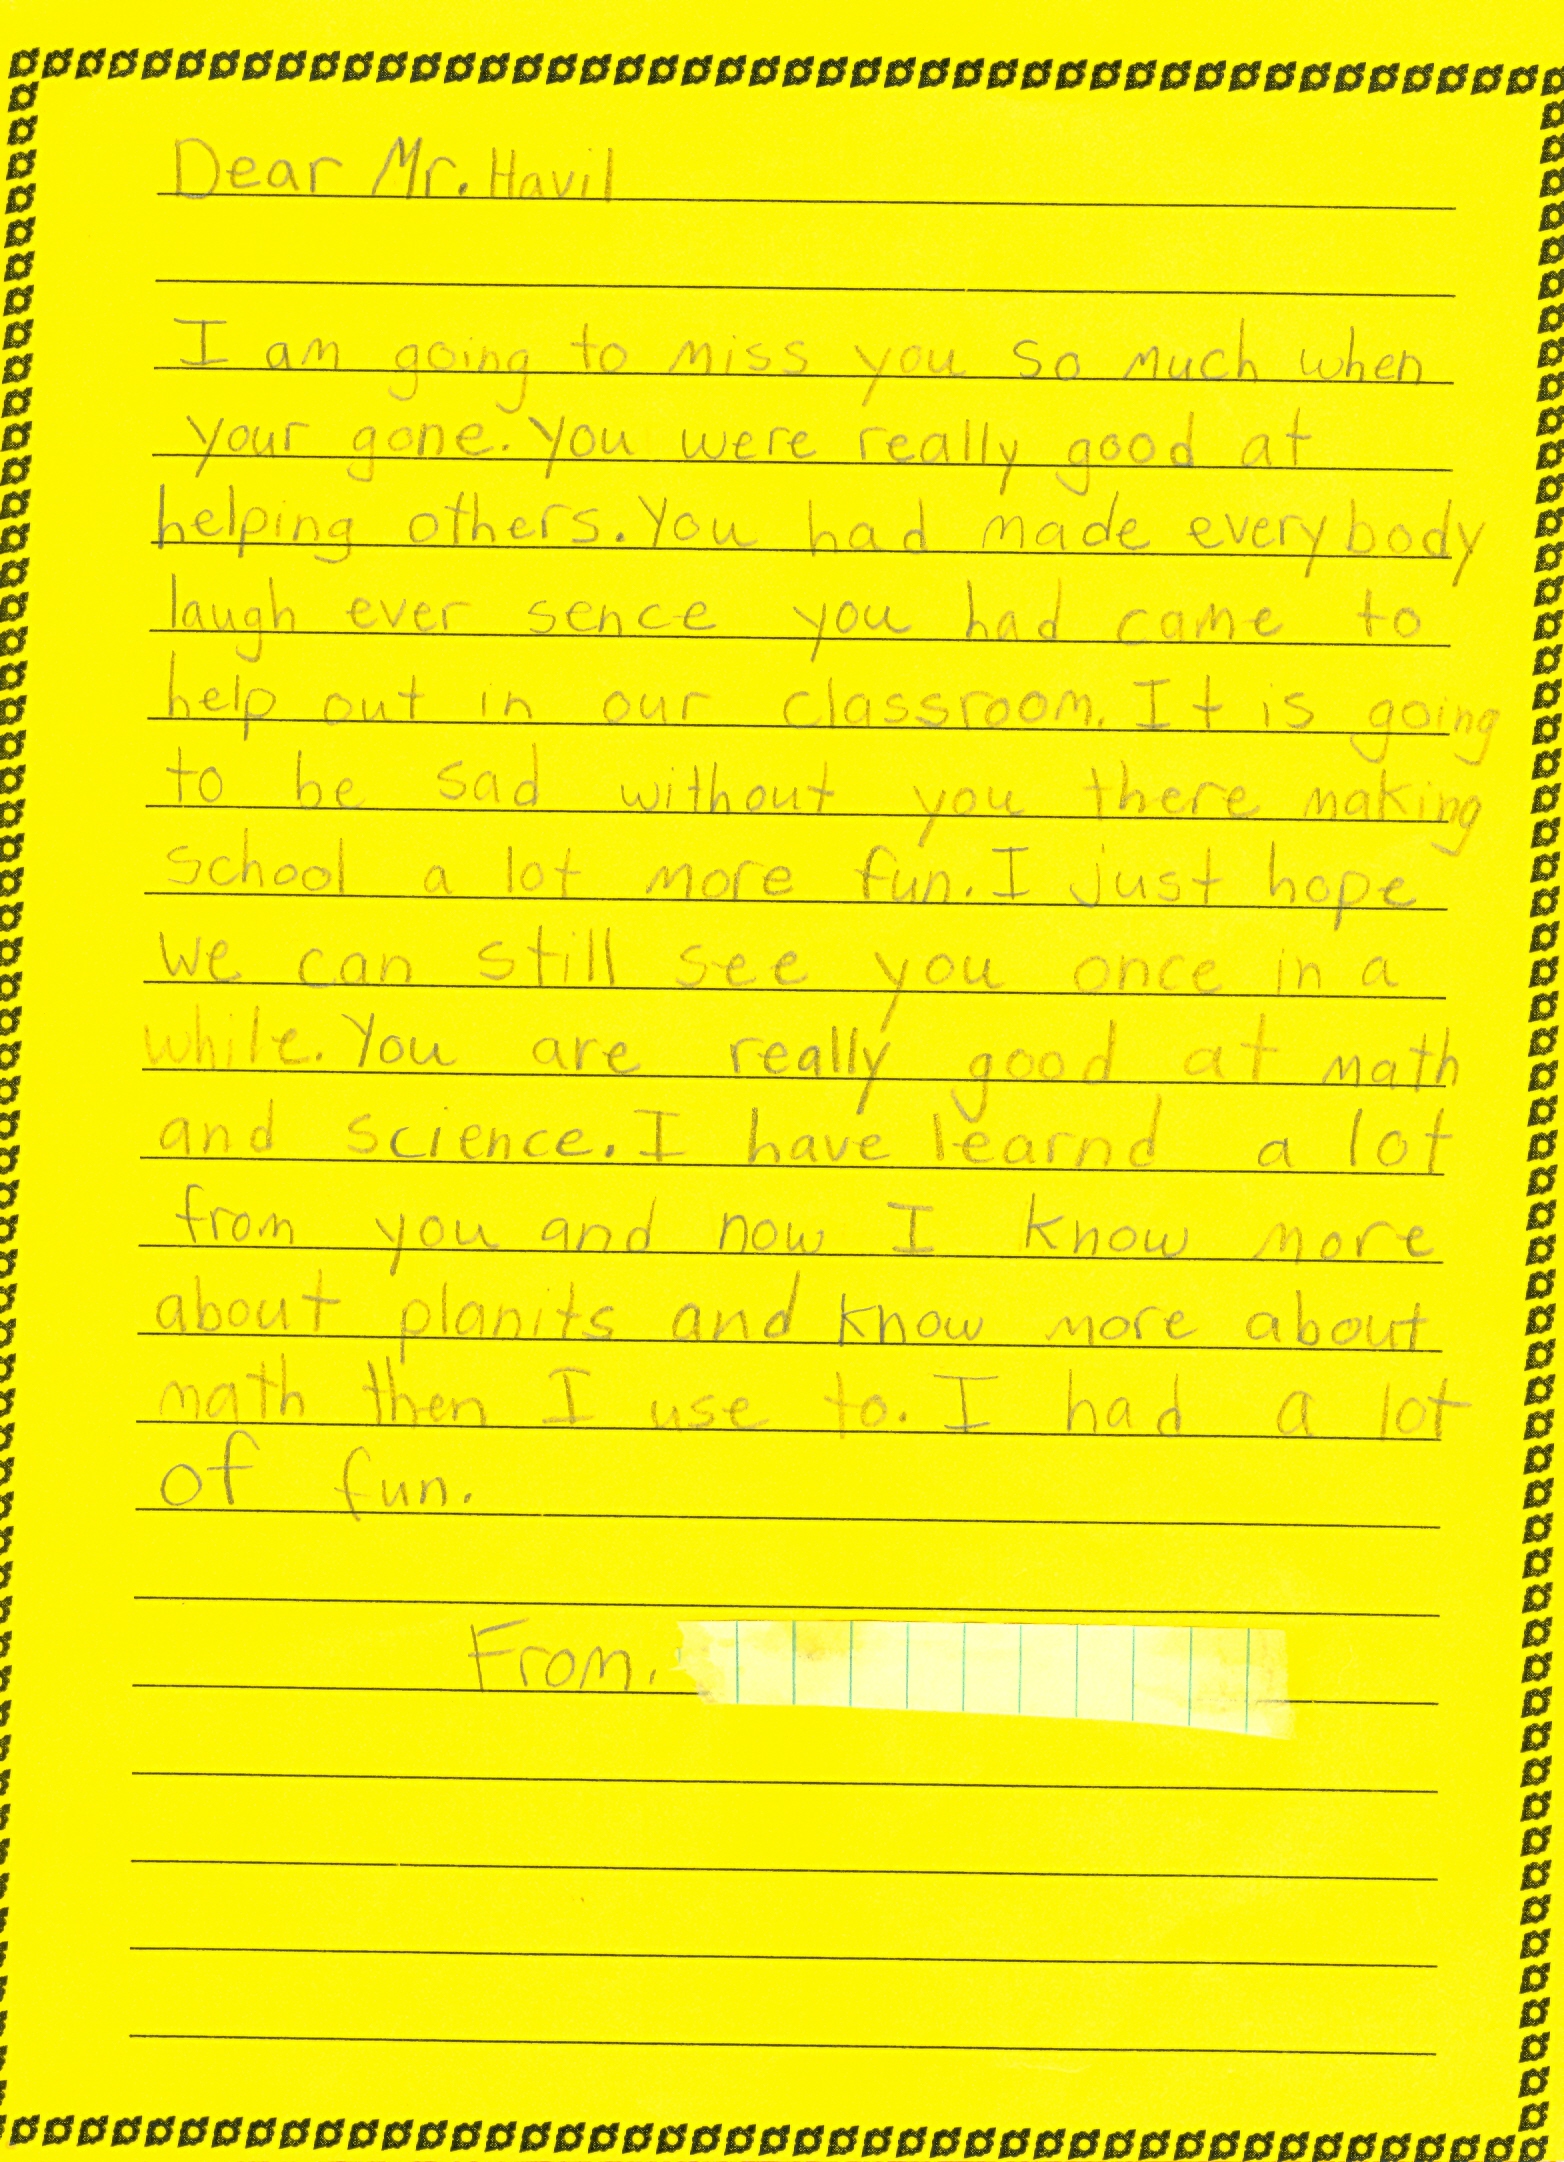 Dear Mr. Havil
I am going to miss you so much when
your gone. You were really good at
helping others. You had made everybody
laugh ever sence you had came to
help out in our classroom. It is going
to be sad without you there making
school a lot more fun. I just hope
we can still see you once in a
while. You are really good at math
and science. I have learnd a lot
from you and now I know more
about planits and know more about
math then I use to. I had a lot
of fun.
From,